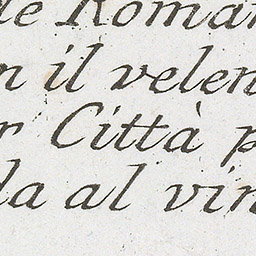 le Roman
n il velen
r Città p
la al vin